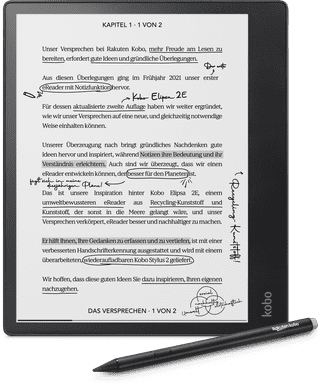 KAPITEL 1 · 1 VON 2
Unser Versprechen bei Rakuten Kobo, mehr Freude am Lesen zu
bereiten, erfordert gute Ideen und gründliche Überlegungen.
Aus diesen Überlegungen ging im Frühjahr 2021 unser erster
eReader mit Notizfunktion hervor.
Kobo Elipsa 2E
Für dessen aktualisierte zweite Auflage haben wir weiter ergründet,
wie wir unser Versprechen auf eine neue, und gleichzeitig notwendige
Weise einhalten können.
Unserer Überzeugung nach bringt gründliches Nachdenken gute
Ideen hervor und inspiriert, während Notizen ihre Bedeutung und ihr
Verständnis erleichtern. Auch sind wir überzeugt, dass wir einen
eReader entwickeln können, der besser für den Planeten ist.
Das ist unsere Inspiration hinter Kobo Elipsa 2E, einem
umweltbewussteren eReader aus Recycling-Kunststoff und
Kunststoff, der sonst in die Meere gelangt wäre, und unser
Versprechen verkörpert, eReader besser und nachhaltiger zu machen.
Recycling-Kunststoff!
Er hilft Ihnen, Ihre Gedanken zu erfassen und zu vertiefen, ist mit einer
verbesserten Handschrifterkennung ausgestattet und wird mit einem
überarbeiteten, wiederaufladbaren Kobo Stylus 2 geliefert.
Wir hoffen, dass diese guten Ideen Sie dazu inspirieren, Ihren eigenen
nachzugehen.
DAS VERSPRECHEN · 1 VON 2
kobo
Rakuten kobo